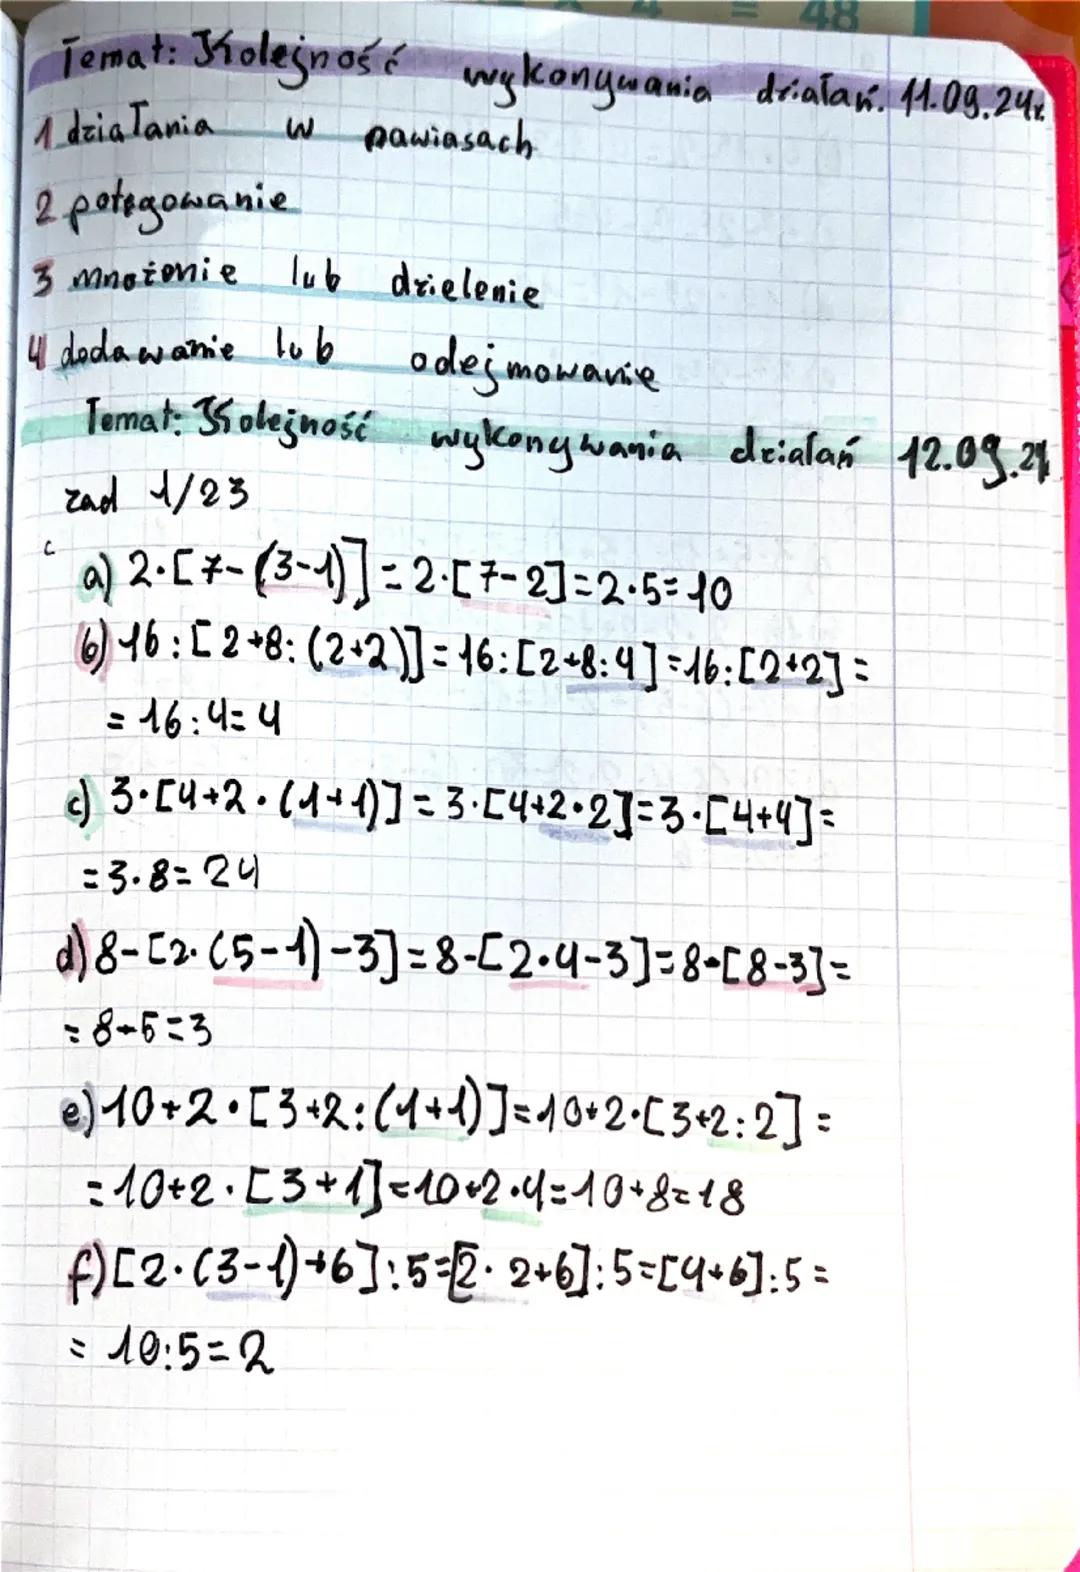 = 48
Temat: Kolejność wykonywania działań. 11.09.24r.
1 działania w nawiasach
2 potęgowanie
3 mnożenie lub dzielenie
4 dodawanie lub odejmowanie
Temat: Kolejność wykonywania działań 12.09.24
zad 1/23
a) 2·[7-(3-1)]=2·[7-2]=2·5=10
b) 16:[2+8:(2+2)]=16:[2+8:4]=16:[2+2]=
=16:4=4
c) 3·[4+2·(1+1)]=3·[4+2·2]=3·[4+4]=
=3·8=24
d) 8-[2·(5-1)-3]=8-[2·4-3]=8-[8-3]=
=8-5=3
e) 10+2·[3+2:(1+1)]=10+2·[3+2:2]=
=10+2·[3+1]=10+2·4=10+8=18
f) [2·(3-1)+6]:5=[2·2+6]:5=[4+6]:5=
=10:5=2